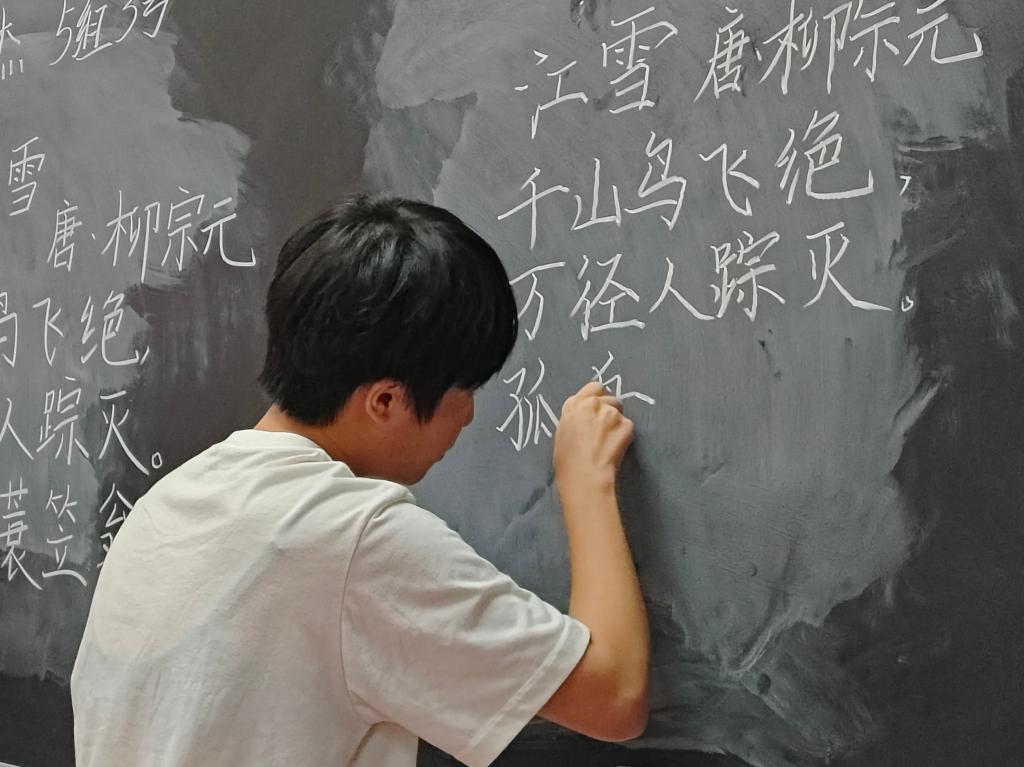 5组3号
雪
唐·柳宗元
鸟飞绝,
人踪灭。
蓑笠翁
江雪 唐·柳宗元
千山鸟飞绝，
万径人踪灭。
孤